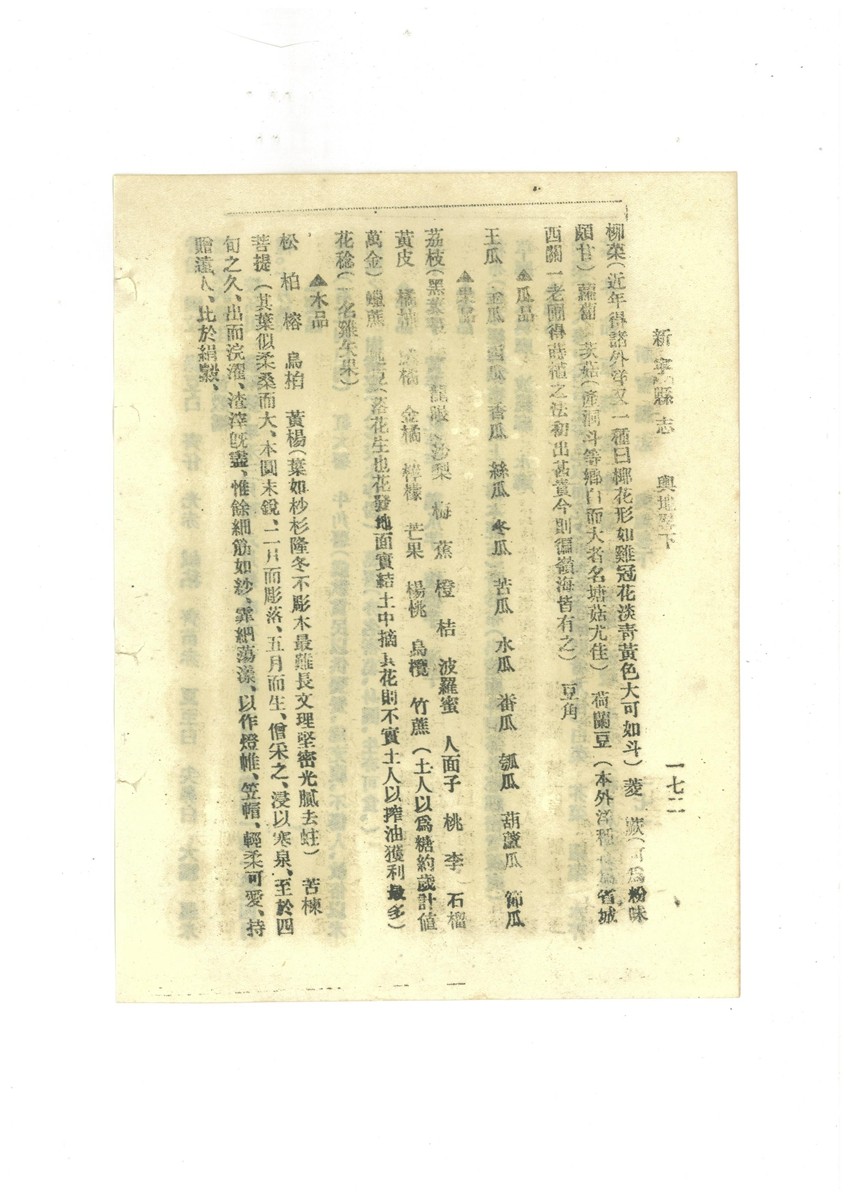 新寧縣志　輿地畧下
一七二
椰菜（近年得諸外洋又一種曰椰花形如雞冠花淡靑黃色大可如斗）　菱　蕨（可爲粉味
頗甘）　蘿蔔　茨菇（產洞斗等鄕白而大者名塘菇尤佳）　荷蘭豆（本外洋種　爲省城
西關一老圃得蒔植之法初出甚貴今則徧嶺海皆有之）　豆角
▲瓜品
王瓜　金瓜　西瓜　香瓜　絲瓜　冬瓜　苦瓜　水瓜　番瓜　瓠瓜　葫蘆瓜　節瓜
▲果品
荔枝（黑葉　龍眼　沙梨　梅　蕉　橙　桔　波羅蜜　人面子　桃　李　石榴
黃皮　橘　橘　金橘　檸檬　芒果　楊桃　烏欖　竹蔗（土人以爲糖約歲計值
萬金）　蠟蔗　地豆（落花生也花發地面實結土中摘去花則不實土人以搾油獲利最多）
花稔（一名雞矢果）
▲木品
松　柏　榕　烏桕　黃楊（葉如杪杉隆冬不彫木最難長文理堅密光膩去蛀）　苦楝
菩提（其葉似柔桑而大、本圓末銳、二月而彫落、五月而生、僧采之、浸以寒泉、至於四
旬之久、出而浣濯、渣滓旣盡、惟餘細筋如紗、霏細蕩漾、以作燈帷、笠帽、輕柔可愛、持
贈遠人、比於綃縠、